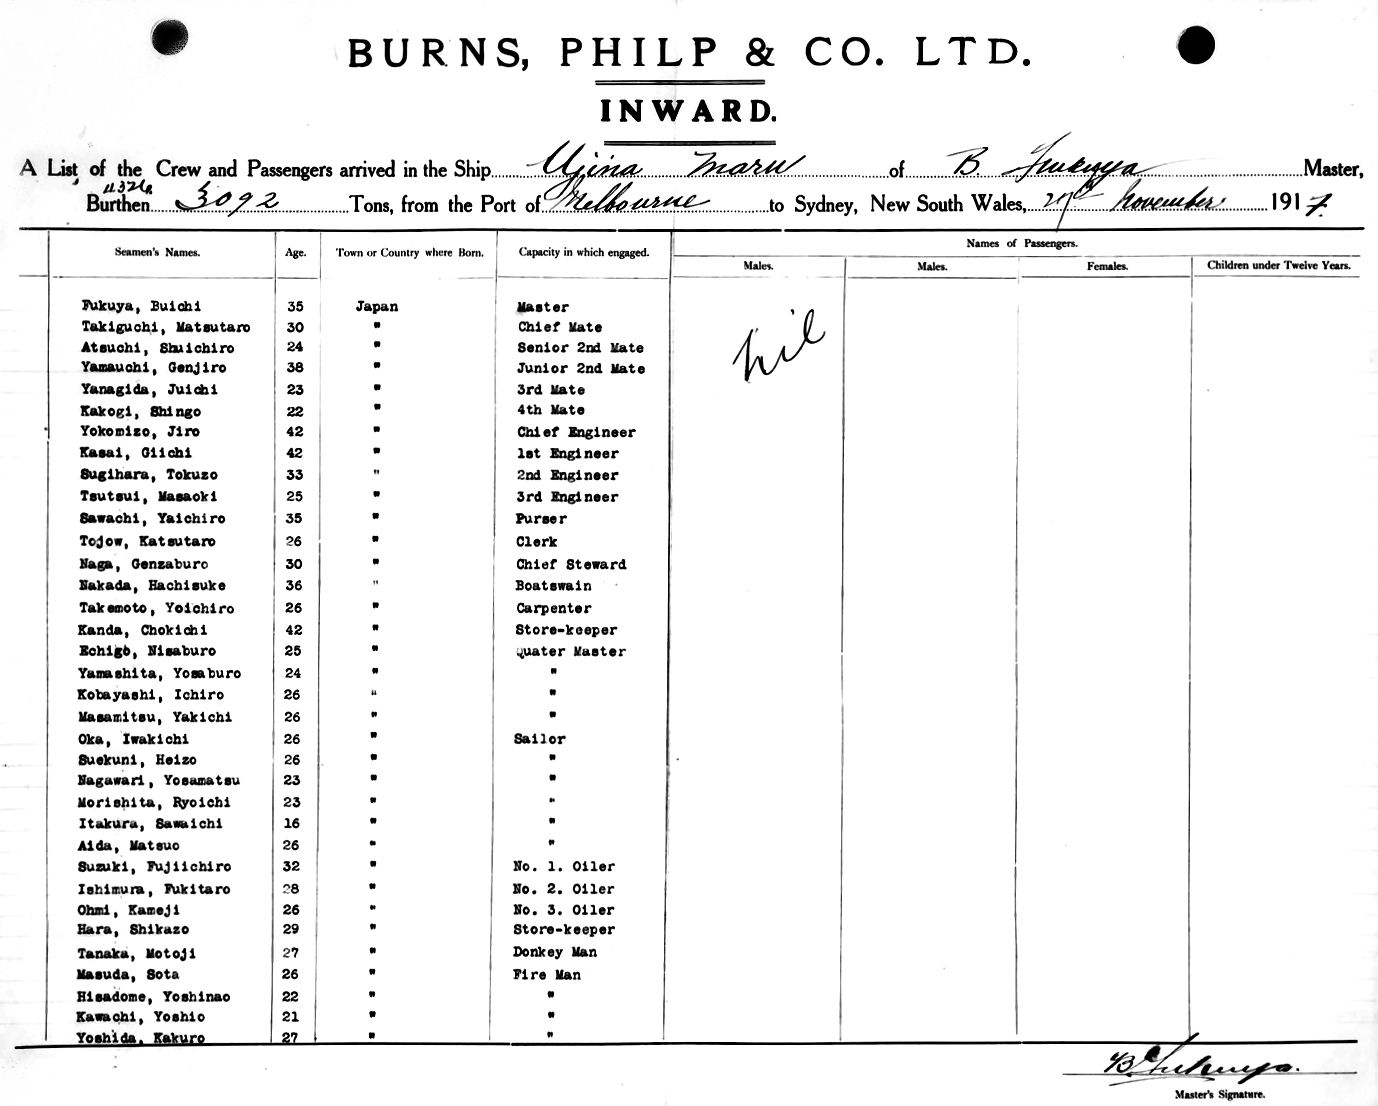 BURNS, PHILP & CO. LTD.
INWARD.
A List of the Crew and Passengers arrived in the Ship Ujina Maru of B. Fukuya Master,
Burthen 3092 Tons, from the Port of Melbourne to Sydney, New South Wales, 27th November 1917.
Seamen's Names. Age. Town or Country where Born. Capacity in which engaged. Names of Passengers.
Males. Males. Females. Children under Twelve Years.
Fukuya, Buichi 35 Japan Master
nil
Takiguchi, Matsutaro 30 " Chief Mate
Atsuchi, Shuichiro 24 " Senior 2nd Mate
Yamauchi, Genjiro 38 " Junior 2nd Mate
Yanagida, Juichi 23 " 3rd Mate
Kakogi, Shingo 22 " 4th Mate
Yokomizo, Jiro 42 " Chief Engineer
Kasai, Giichi 42 " 1st Engineer
Sugihara, Tokuzo 33 " 2nd Engineer
Tsutsui, Masaoki 25 " 3rd Engineer
Sawachi, Yaichiro 35 " Purser
Tojow, Katsutaro 26 " Clerk
Naga, Genzaburo 30 " Chief Steward
Nakada, Hachisuke 36 " Boatswain
Takemoto, Yoichiro 26 " Carpenter
Kanda, Chokichi 42 " Store-keeper
Echigo, Nisaburo 25 " Quater Master
Yamashita, Yosaburo 24 " "
Kobayashi, Ichiro 26 " "
Masamitsu, Yakichi 26 " "
Oka, Iwakichi 26 " Sailor
Suekuni, Heizo 26 " "
Nagawari, Yosamatsu 23 " "
Morishita, Ryoichi 23 " "
Itakura, Sawaichi 16 " "
Aida, Matsuo 26 " "
Suzuki, Fujiichiro 32 " No. 1. Oiler
Ishimura, Fukitaro 28 " No. 2. Oiler
Ohmi, Kameji 26 " No. 3. Oiler
Hara, Shikazo 29 " Store-keeper
Tanaka, Motoji 27 " Donkey Man
Masuda, Sota 26 " Fire Man
Hisadome, Yoshinao 22 " "
Kawachi, Yoshio 21 " "
Yoshida, Kakuro 27 " "
B. Fukuya.
Master's Signature.